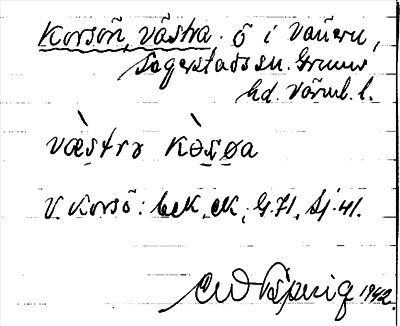 Korsön, västra. ö i Vänern,
Segerstads sn. Grums
hd. Värml. l.
væ̀strə kòṣøa
V. Korsö: bek, ek, G.71, Sj. 41.
1942.